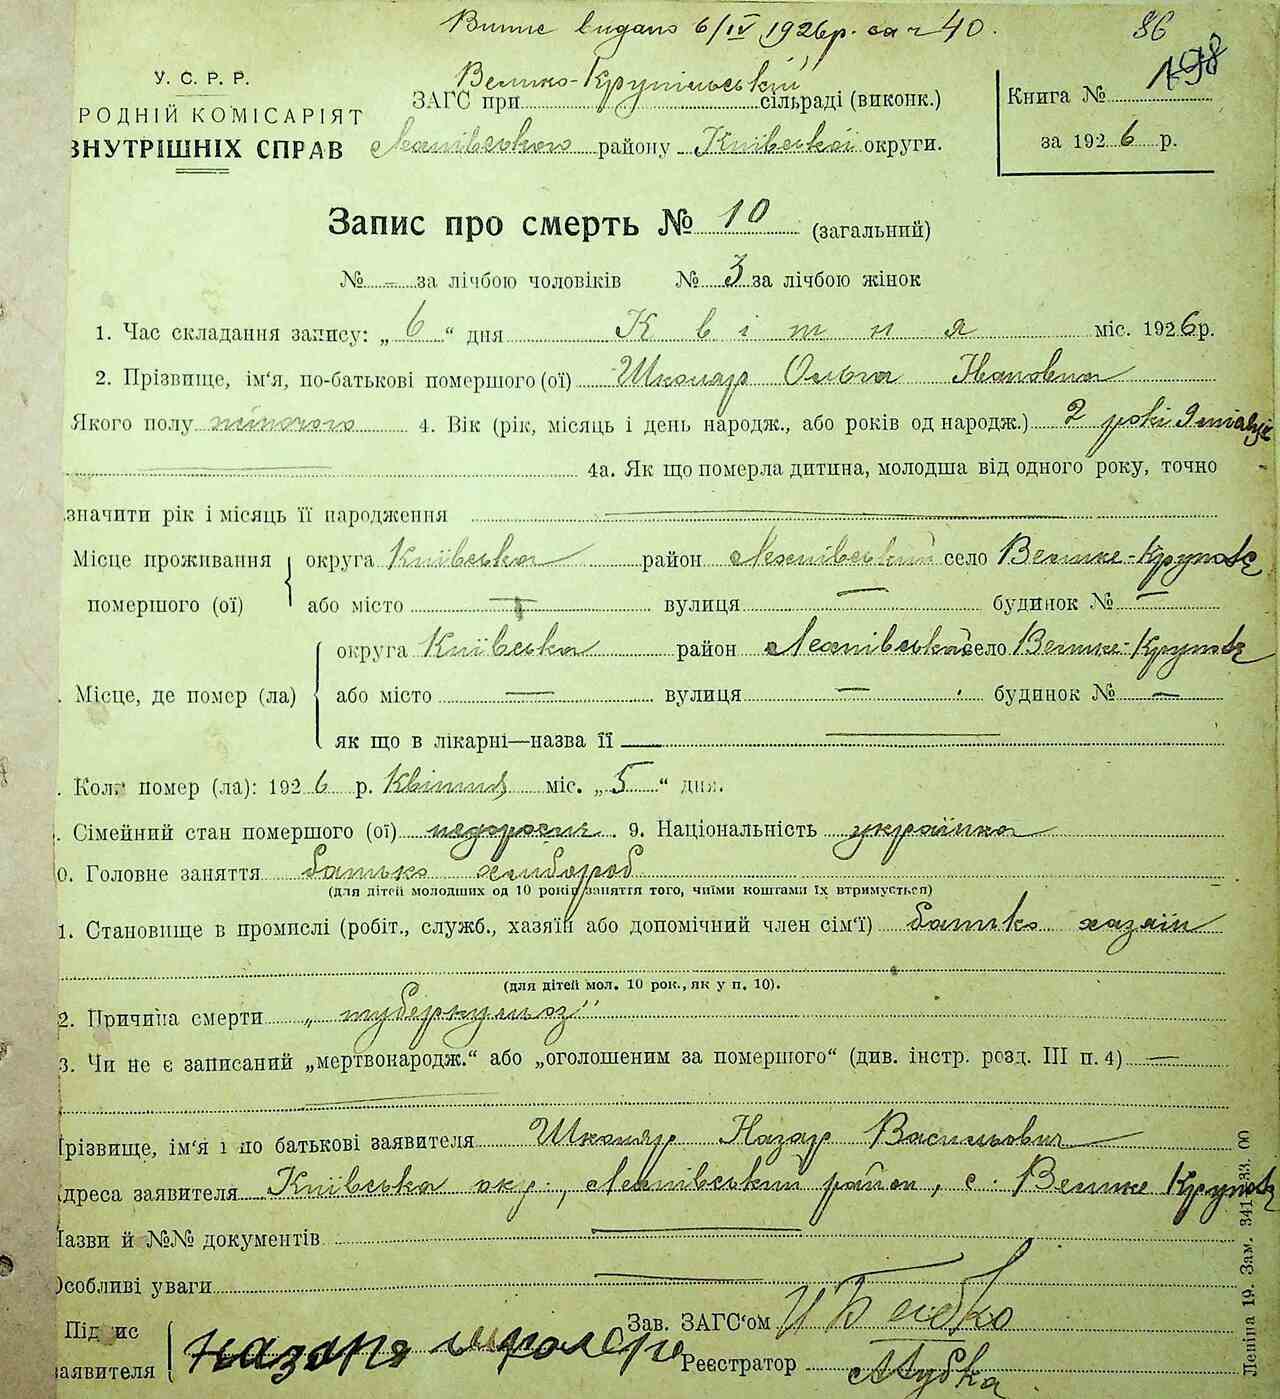 Випис видано 6/IV 1926р. за ч 40. 86
У. С. Р. Р. Велико-Крупільській
РОДНІЙ КОМІСАРІЯТ ЗАГС при сільраді (виконк.) Книга № 198
ВНУТРІШНІХ СПРАВ району Київської округи. за 1926 р.
Запис про смерть № 10 (загальний)
№ - за лічбою чоловіків № 3 за лічбою жінок
1. Час складання запису: „6“ дня Квітня міс. 1926р.
2. Прізвище, ім‘я, по-батькові помершого (ої) Школяр Ольга
Якого полу жіночого 4. Вік (рік, місяць і день народж., або років од народж.) 2 рокі 9 місяців
4а. Як що померла дитина, молодша від одного року, точно
значити рік і місяць її народження
Місце проживання округа Київська район село Велике-Крупілє
помершого (ої) або місто — вулиця — будинок № —
округа Київська район село Велике-Крупілє
. Місце, де помер (ла) або місто — вулиця — будинок № —
як що в лікарні—назва її —
. Коли помер (ла): 1926 р. Квітня міс. „5“ дня.
. Сімейний стан помершого (ої) недоросле. 9. Національність українка
0. Головне заняття батько хлібороб
(для дітей молодших од 10 років заняття того, чиїми коштами їх втримується)
1. Становище в промислі (робіт., служб., хазяїн або допомічний член сім‘ї) батько хазяїн
(для дітей мол. 10 рок., як у п. 10).
2. Причина смерти „туберкульоз“
3. Чи не є записаний „мертвонародж.“ або „оголошеним за помершого“ (див. інстр. розд. III п. 4) —
Прізвище, ім‘я і по батькові заявителя Школяр Назар Васильович
Адреса заявителя Київська окр., район, с. Велике Крупілє
Назви й №№ документів —
Особливі уваги —
Підпис Зав. ЗАГС‘ом
заявителя назаря школяра Реєстратор
Леніна 19. Зам. 341-133. 00